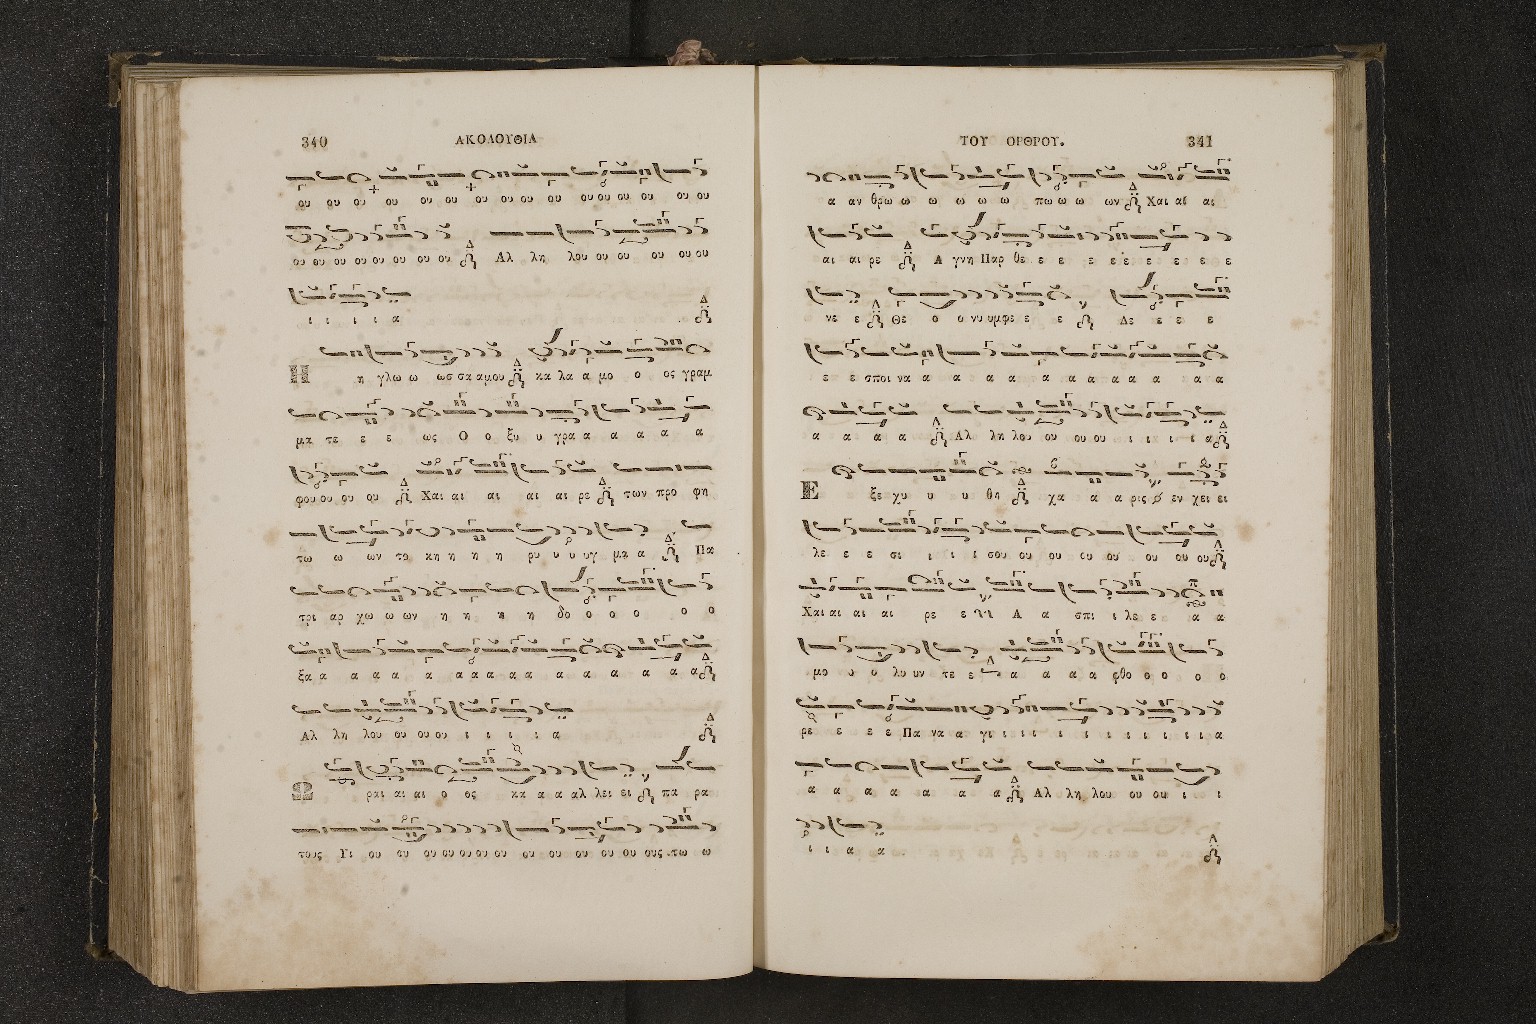 340 ΑΚΟΛΟΥΘΙΑ
ου ου ου ου ου ου ου ου ου ου ου ου ου ου ου
ου ου ου ου ου ου ου ου ου Αλ λη λου ου ου ου ου ου
ι ι ι ι α
Η η γλω ω ωσ σα α μου κα λα α μο ο ος γραμ
μα τε ε ε ως Ο ο ξυ υ γρα α α α α α
φου ου ου ου Χαι αι αι αι αι ρε των προ φη
τω ω ων το κη η η η ρυ υ υ υγ μα α Πα
τρι αρ χω ω ων η η η η δο ο ο ο ο ο
ξα α α α α α α α α α α α α α α α
Αλ λη λου ου ου ου ι ι ι ι α
Ω ραι αι αι ο ος κα α α αλ λει ει πα ρα
τους Υι ου ου ου ου ου ου ου ου ου ου ου ου ους τω ω
ΤΟΥ ΟΡΘΡΟΥ. 341
α αν θρω ω ω ω ω ω πω ω ω ων Χαι αι αι
αι αι ρε Α γνη Παρ θε ε ε ε ε ε ε ε ε ε
νε ε Θε ο ο νυ υμφε ε ε Δε ε ε ε
ε ε σποι να α α α α α α α α α α α α
α α α α Αλ λη λου ου ου ου ι ι ι ι α
Ε ξε χυ υ υ θη χα α α ρις εν χει ει
λε ε ε σι ι ι ι σου ου ου ου ου ου ου ου
Χαι αι αι αι ρε ε Α α σπι ι λε ε α α
μο ο ο λυ υν τε ε α α α α φθο ο ο ο ο
ρε ε ε ε Πα να α γι ι ι ι ι ι ι ι ι ι ι α
α α α α α α α Αλ λη λου ου ου ι ι
ι ι α α